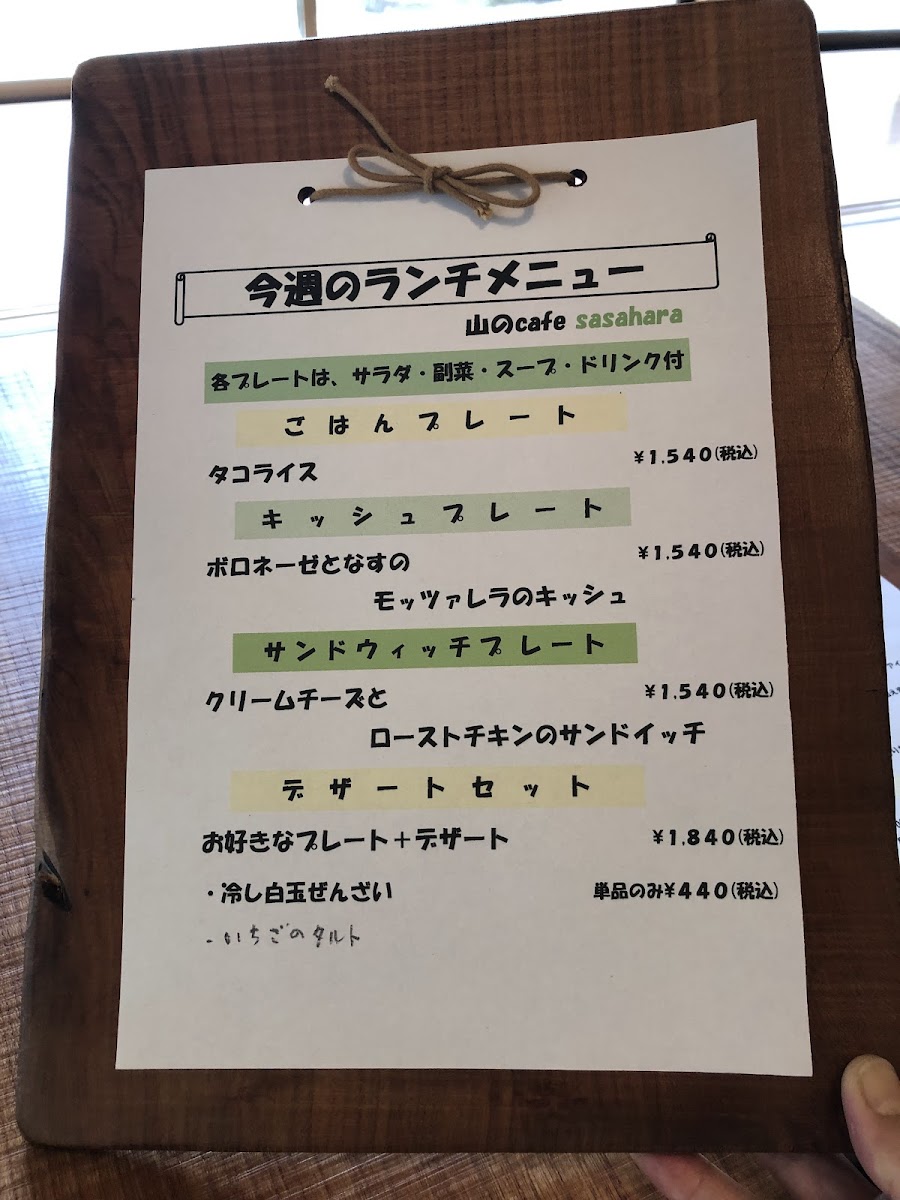 今週のランチメニュー
山のcafe sasahara
各プレートは、サラダ・副菜・スープ・ドリンク付
ごはんプレート
タコライス ¥1,540(税込)
キッシュプレート
ボロネーゼとなすの ¥1,540(税込)
モッツァレラのキッシュ
サンドウィッチプレート
クリームチーズと ¥1,540(税込)
ローストチキンのサンドイッチ
デザートセット
お好きなプレート+デザート ¥1,840(税込)
・冷し白玉ぜんざい 単品のみ¥440(税込)
・いちごのタルト